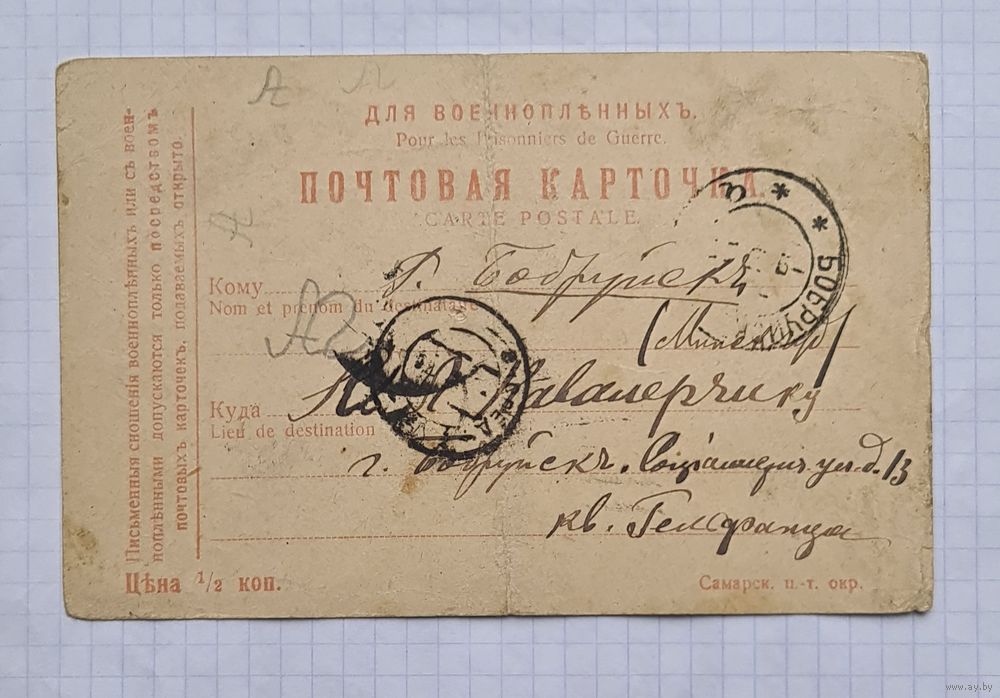 Письменныя сношенія военноплѣнныхъ или съ воен-
ноплѣнными допускаются только посредствомъ
почтовыхъ карточекъ, подаваемыхъ открыто.
ДЛЯ ВОЕННОПЛѢННЫХЪ.
Pour les Prisonniers de Guerre.
ПОЧТОВАЯ КАРТОЧКА.
CARTE POSTALE.
Г. Бобруйскъ
Кому
Nom et prénom du destinataire
Куда
Кавалерчику
Lieu de destination
г. Бобруйскъ. ул. д. 13
кв. Гельфанда
Цѣна 1/2 коп.
Самарск. п.-т. окр.
* * БОБРУЙ
3
www.ay.by